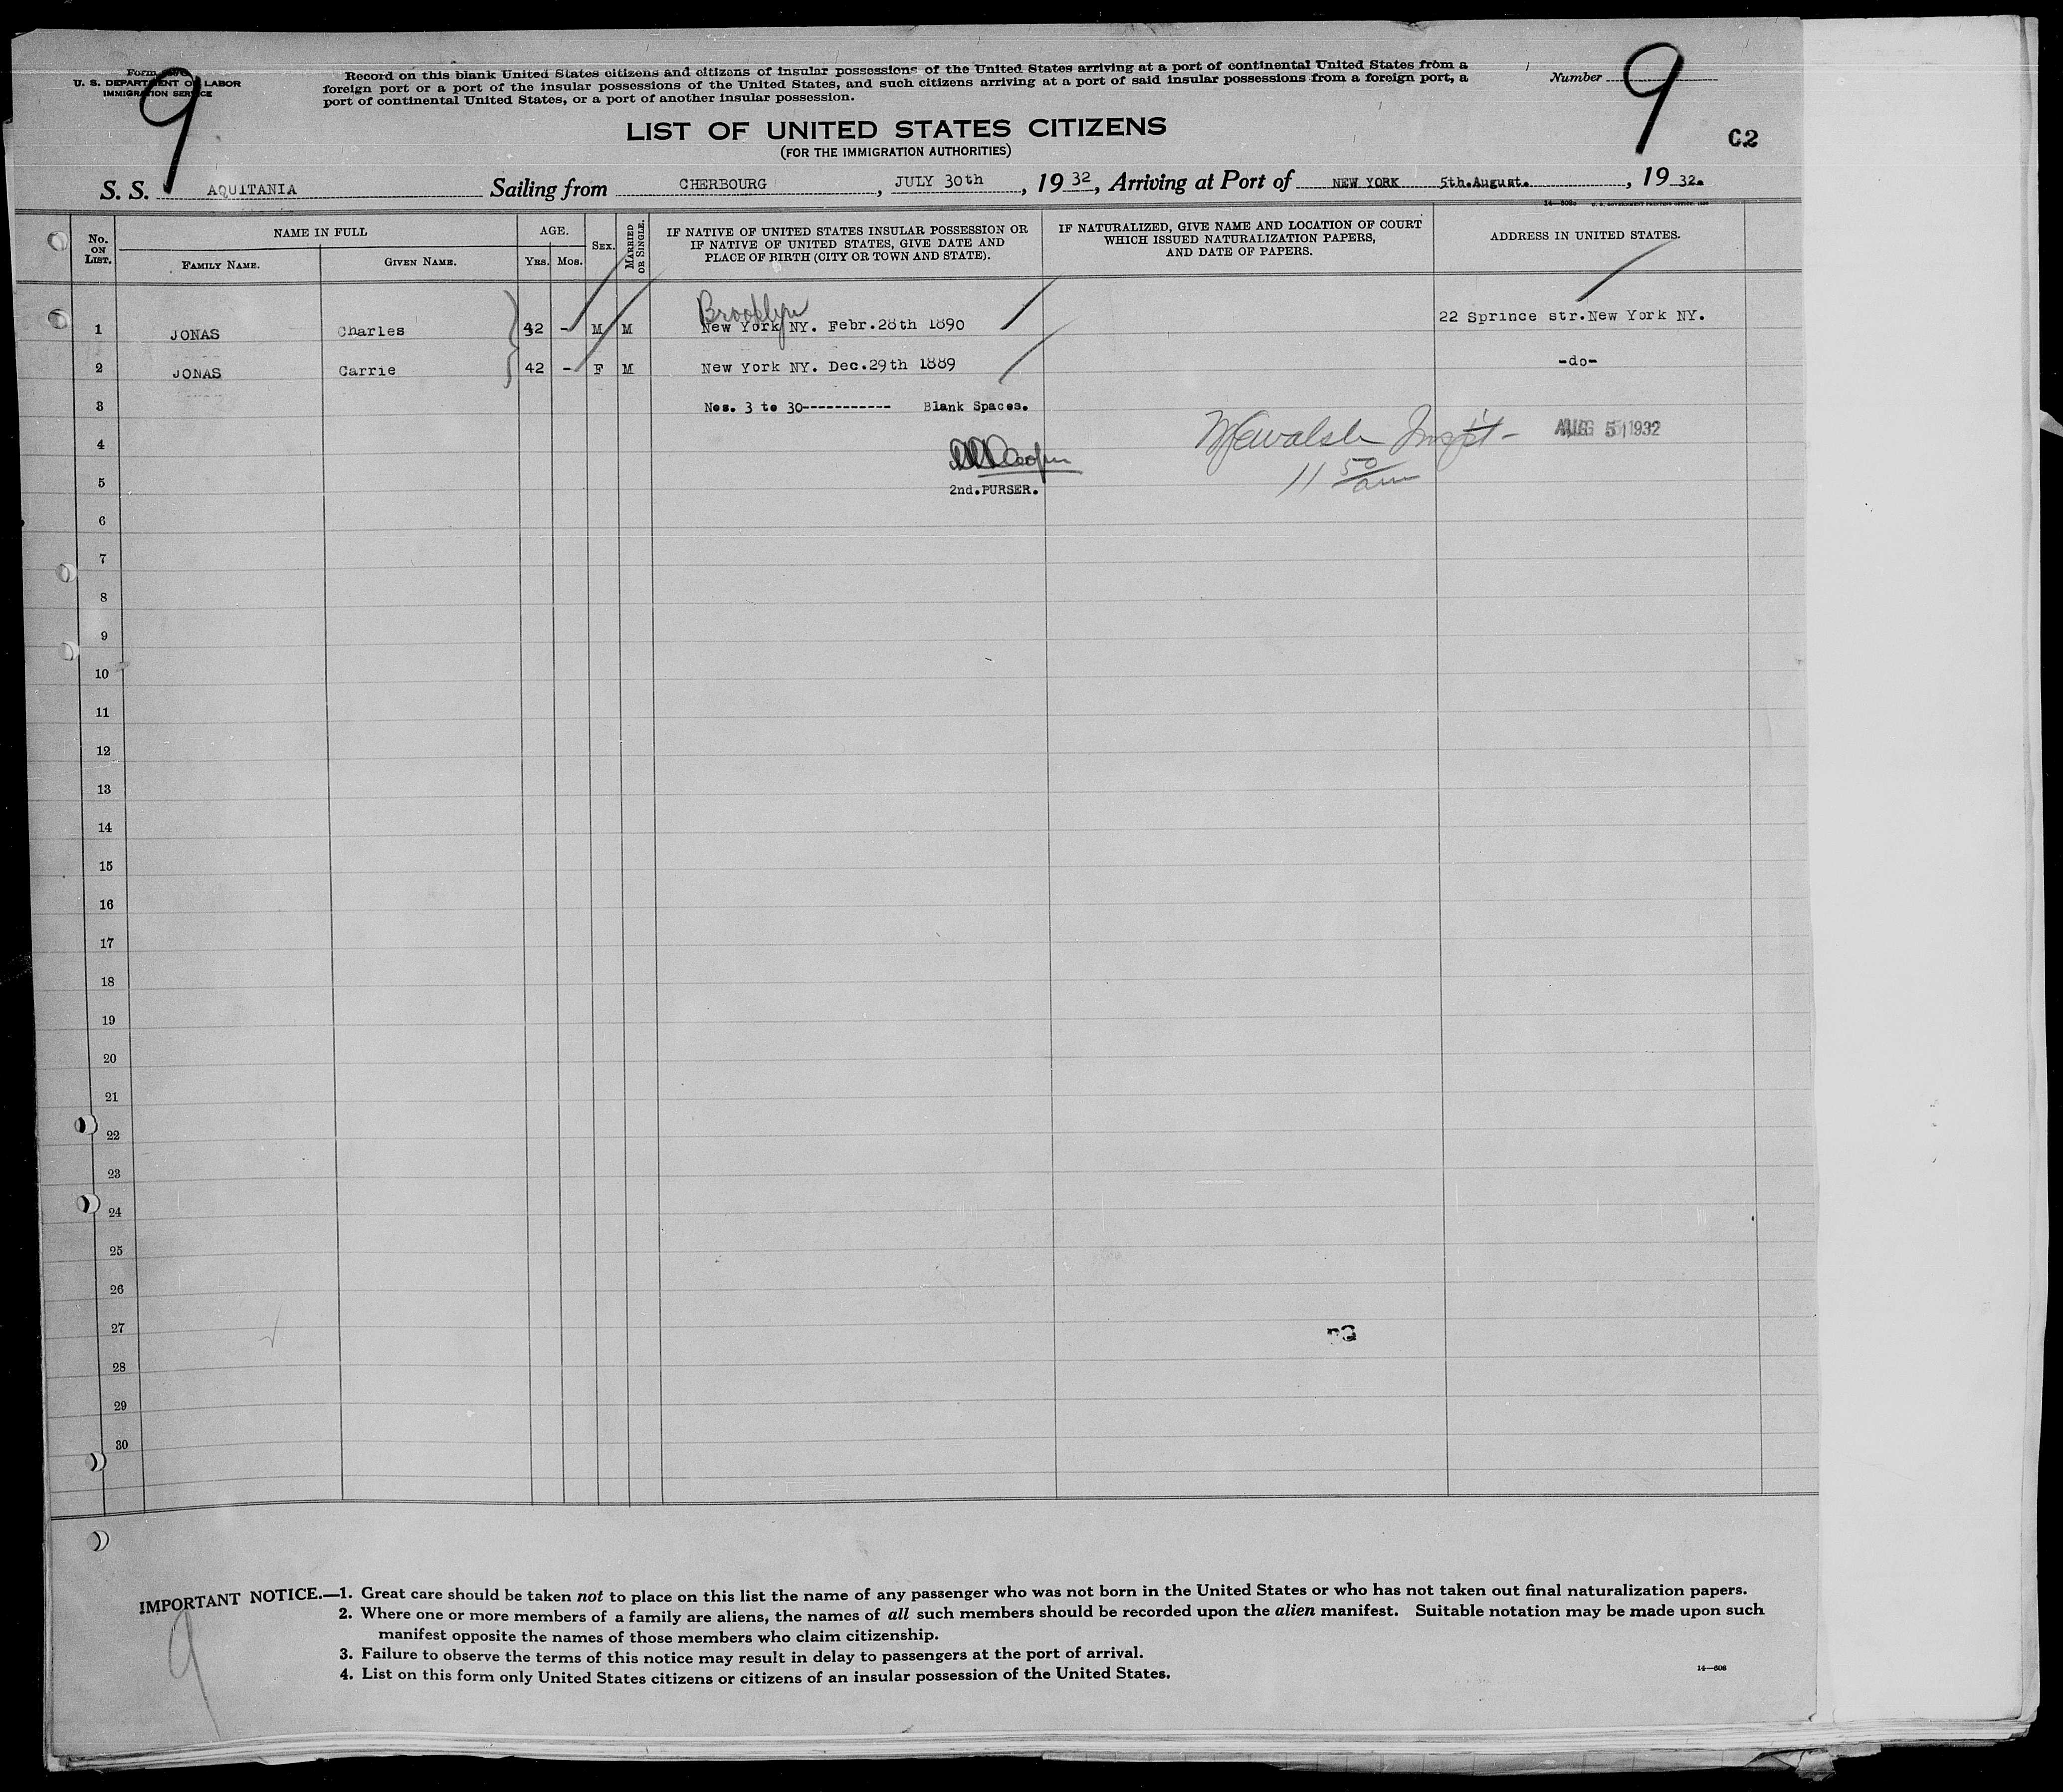 Form
U. S. DEPARTMENT OF LABOR
IMMIGRATION SERVICE
9
Record on this blank United States citizens and citizens of insular possessions of the United States arriving at a port of continental United States from a
foreign port or a port of the insular possessions of the United States, and such citizens arriving at a port of said insular possessions from a foreign port, a
port of continental United States, or a port of another insular possession.
Number 9
LIST OF UNITED STATES CITIZENS
C2
(FOR THE IMMIGRATION AUTHORITIES)
S. S. AQUITANIA Sailing from CHERBOURG, JULY 30th, 1932, Arriving at Port of NEW YORK 5th.August., 1932.
No. ON LIST. NAME IN FULL AGE. SEX. MARRIED OR SINGLE. IF NATIVE OF UNITED STATES INSULAR POSSESSION OR IF NATIVE OF UNITED STATES, GIVE DATE AND PLACE OF BIRTH (CITY OR TOWN AND STATE). IF NATURALIZED, GIVE NAME AND LOCATION OF COURT WHICH ISSUED NATURALIZATION PAPERS, AND DATE OF PAPERS. ADDRESS IN UNITED STATES.
FAMILY NAME. GIVEN NAME. YRS. MOS.
Brooklyn
1 JONAS Charles 42 - M M New York NY. Febr.28th 1890 22 Sprince str.New York NY.
2 JONAS Carrie 42 - F M New York NY. Dec.29th 1889 -do-
3 Nos. 3 to 30----------- Blank Spaces.
4 Walsh Inspt- AUG 5 1932
11 50/am
5 2nd.PURSER.
6
7
8
9
10
11
12
13
14
15
16
17
18
19
20
21
22
23
24
25
26
27
28
29
30
IMPORTANT NOTICE.—1. Great care should be taken not to place on this list the name of any passenger who was not born in the United States or who has not taken out final naturalization papers.
2. Where one or more members of a family are aliens, the names of all such members should be recorded upon the alien manifest. Suitable notation may be made upon such
manifest opposite the names of those members who claim citizenship.
3. Failure to observe the terms of this notice may result in delay to passengers at the port of arrival.
4. List on this form only United States citizens or citizens of an insular possession of the United States.
14—608
9